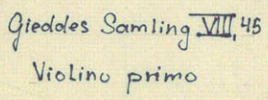 Gieddes Samling VIII, 45
Violino primo